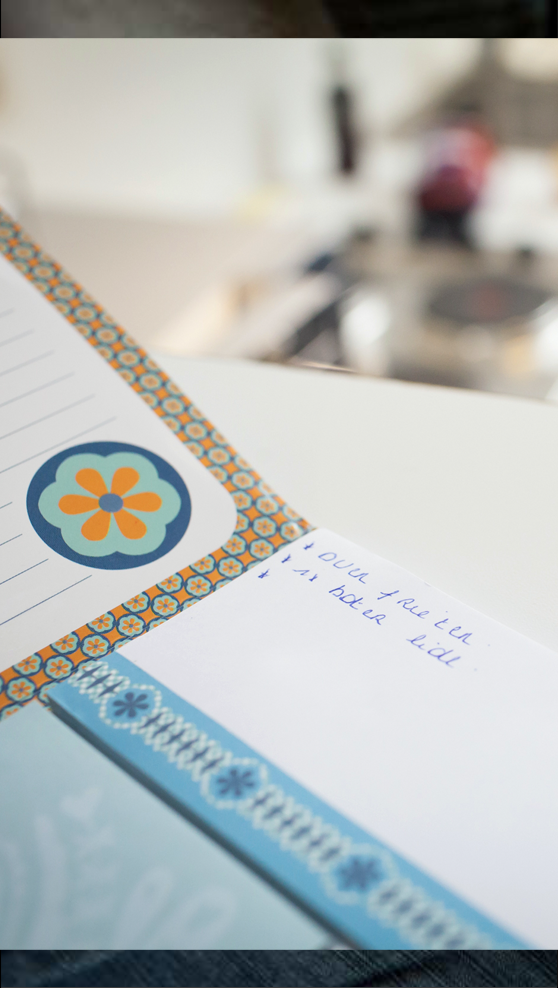 * OVEN frieten
* 1x boter lidl
*